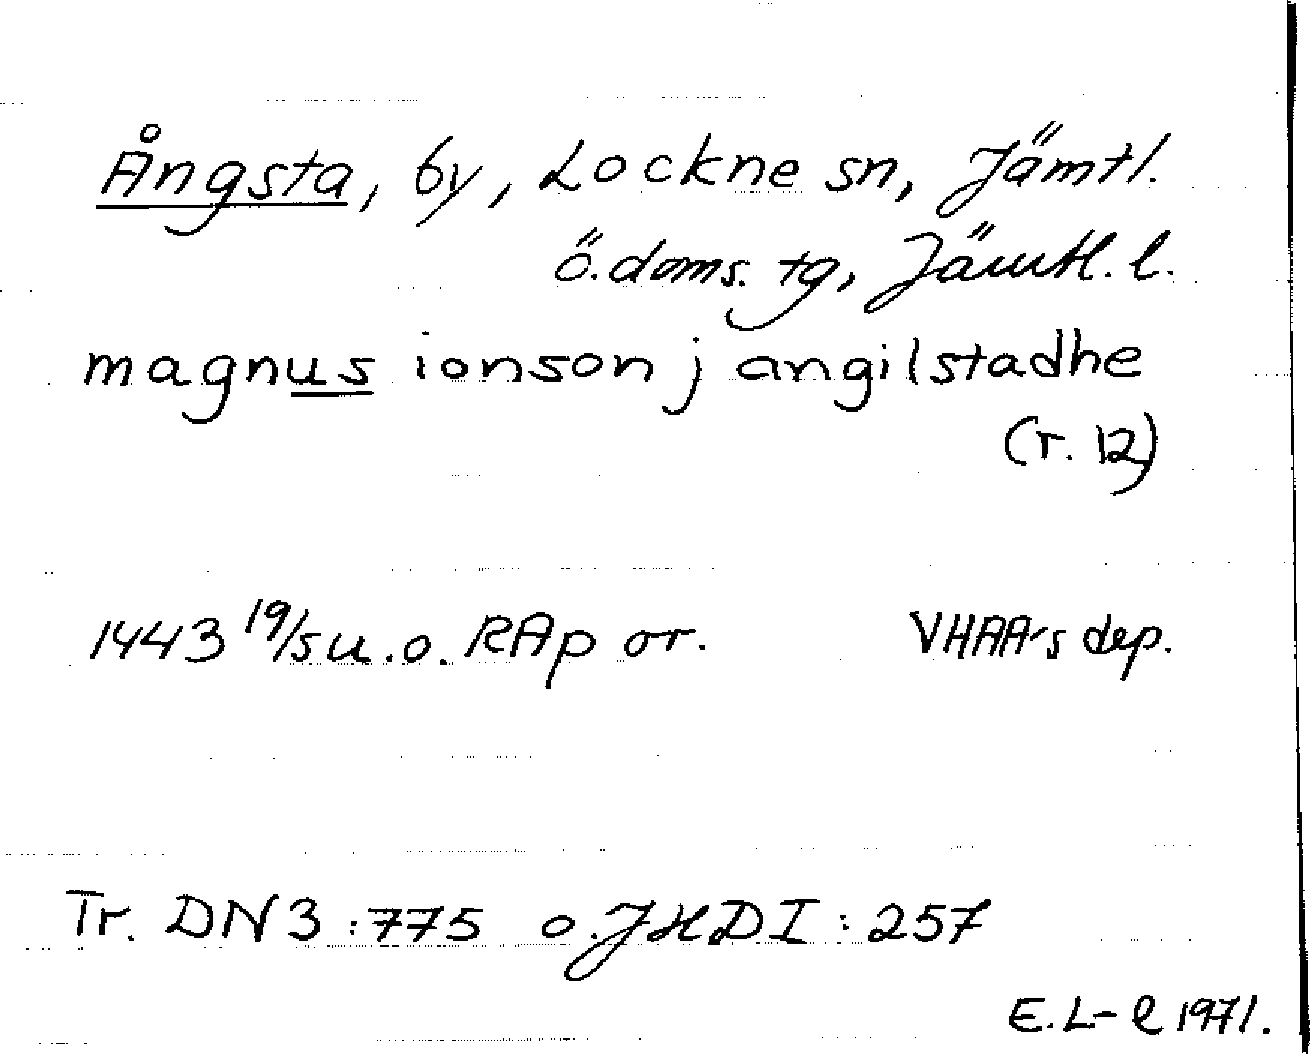 Ångsta, by, Lockne sn, Jämtl.
ö. doms. tg, Jämtl. l.
magnus ionson j angilstadhe
(r. 12)
1443 19/5 u.o. RAp or. VHAA's dep.
Tr. DN 3:775 o. JHD I:257
E.L-l 1971.